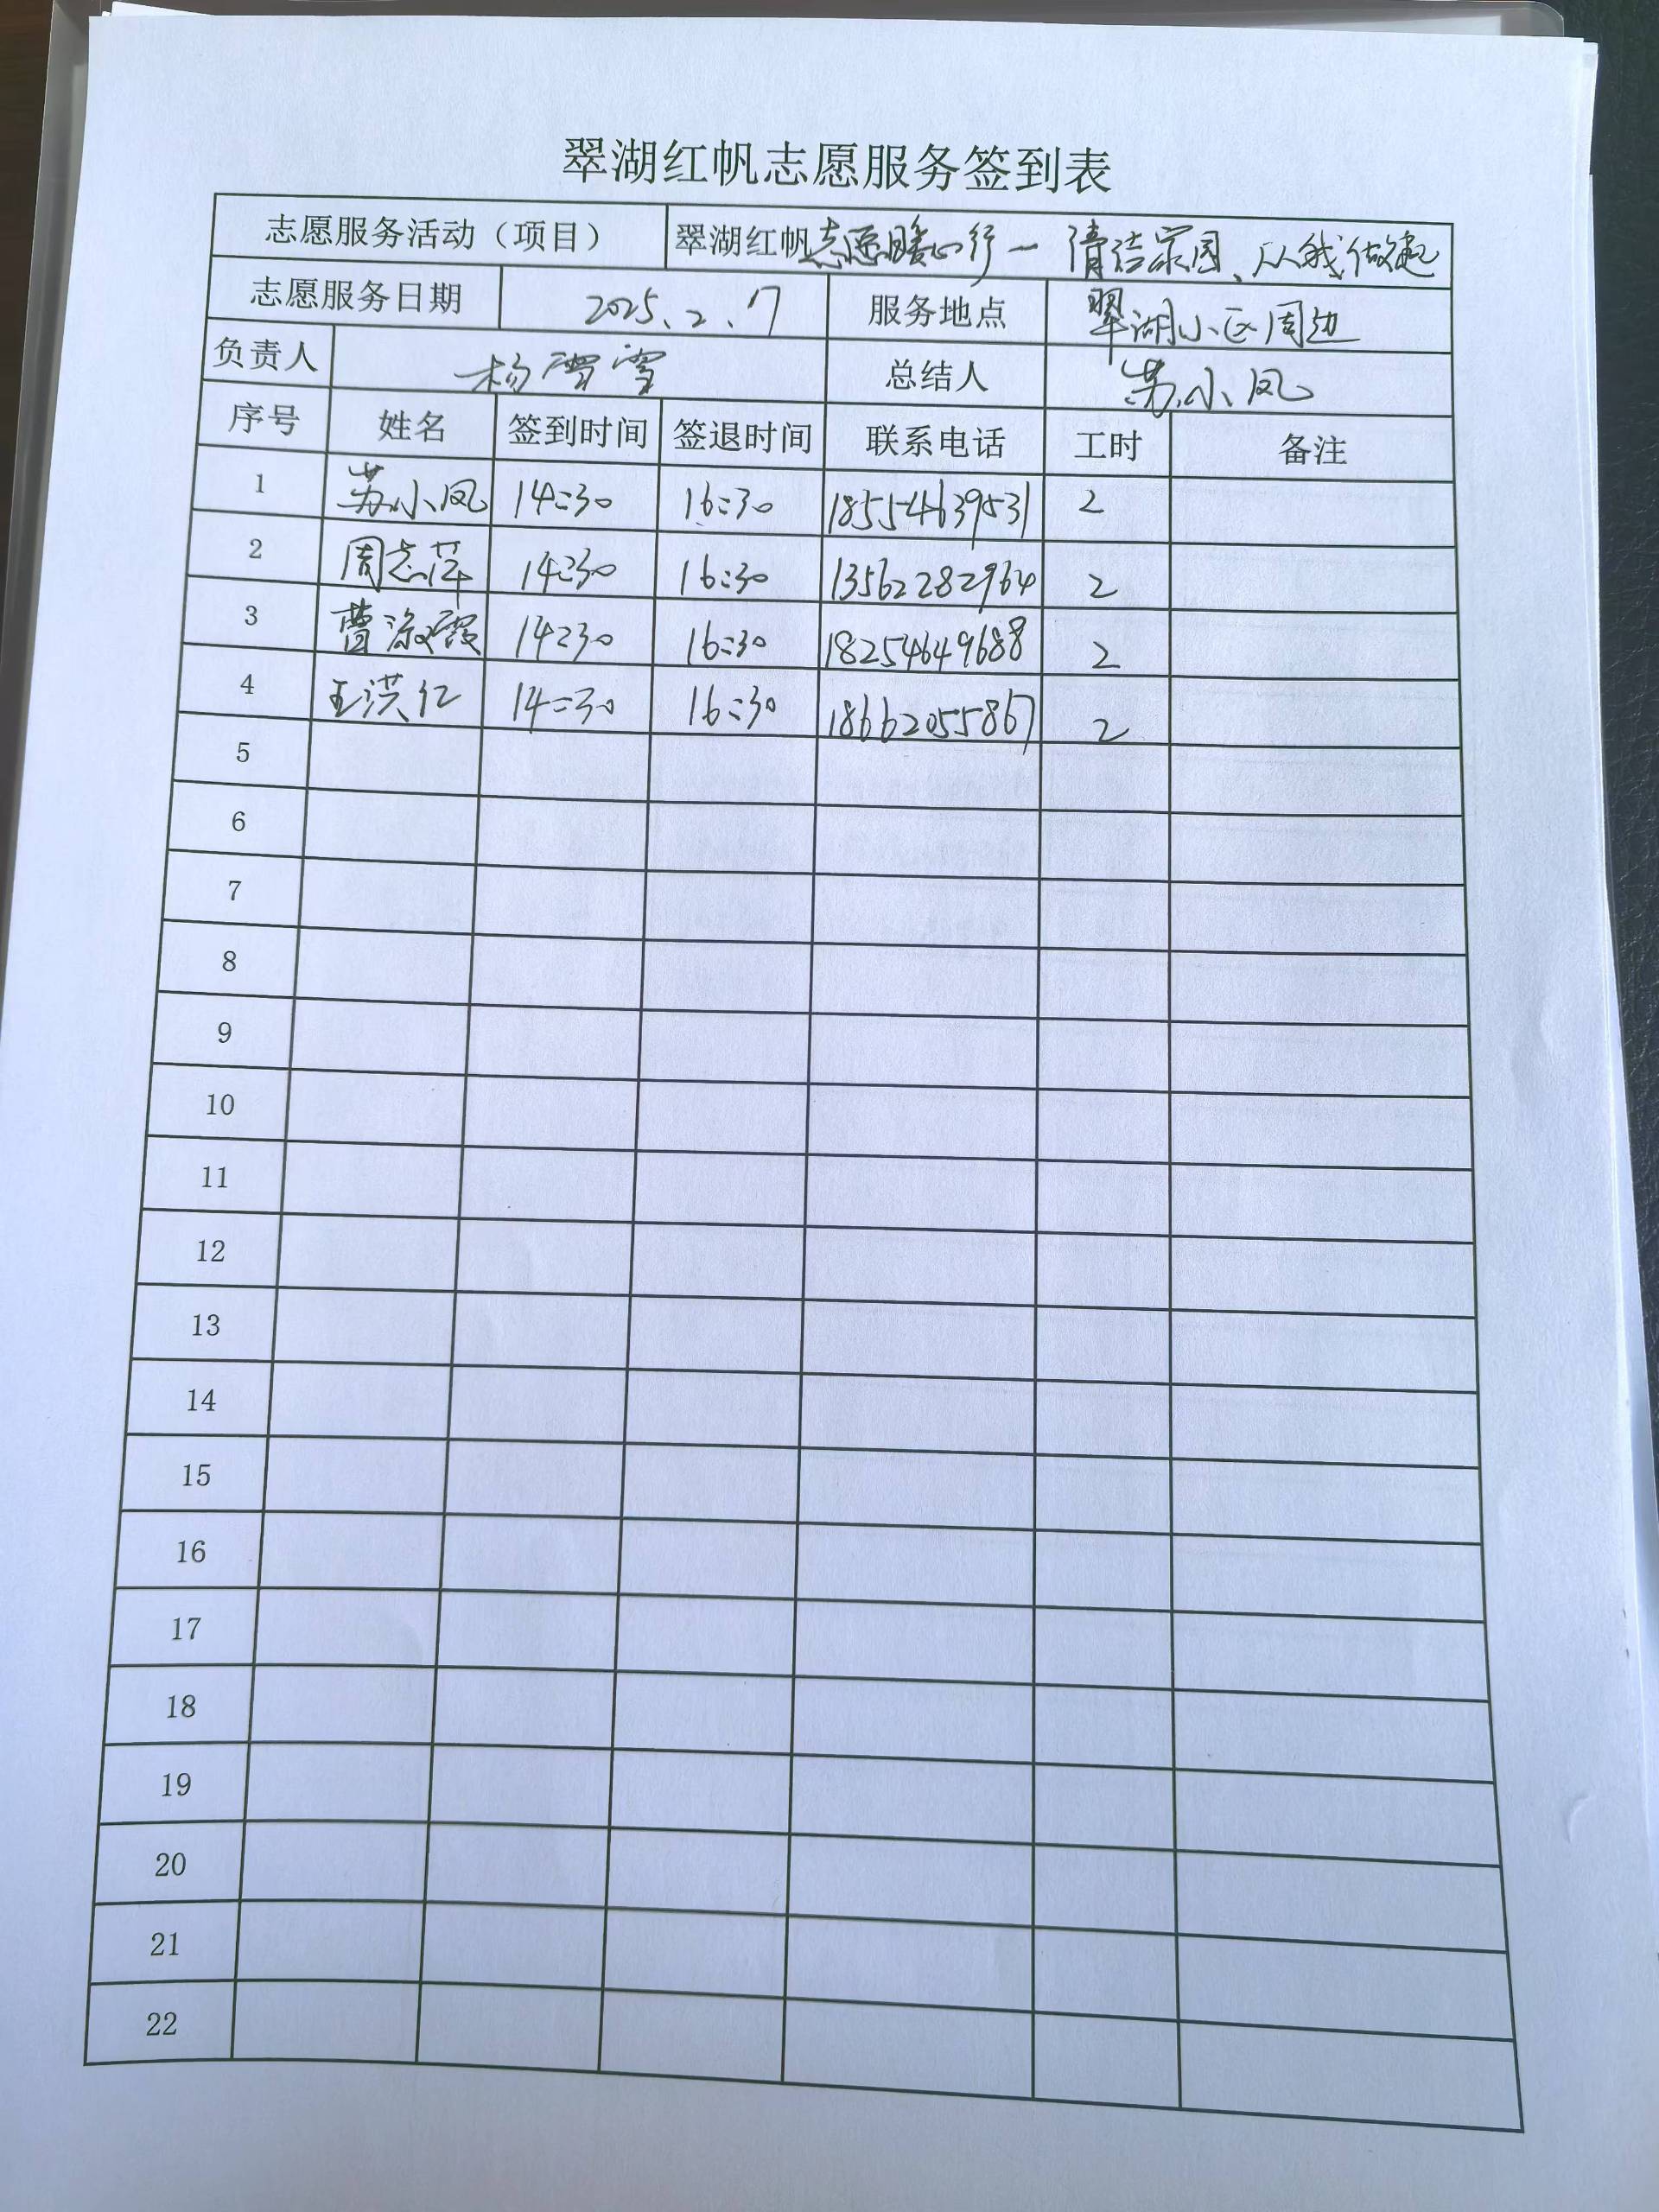 翠湖红帆志愿服务签到表
志愿服务活动（项目） 翠湖红帆志愿暖心行一清洁家园、从我做起
志愿服务日期 2025.2.17 服务地点 翠湖小区周边
负责人 杨雪雪 总结人 苏小凤
序号 姓名 签到时间 签退时间 联系电话 工时 备注
1 苏小凤 14:30 16:30 18554639531 2
2 周志萍 14:30 16:30 13562282964 2
3 曹淑霞 14:30 16:30 18254649688 2
4 王洪仁 14:30 16:30 18662055867 2
5
6
7
8
9
10
11
12
13
14
15
16
17
18
19
20
21
22